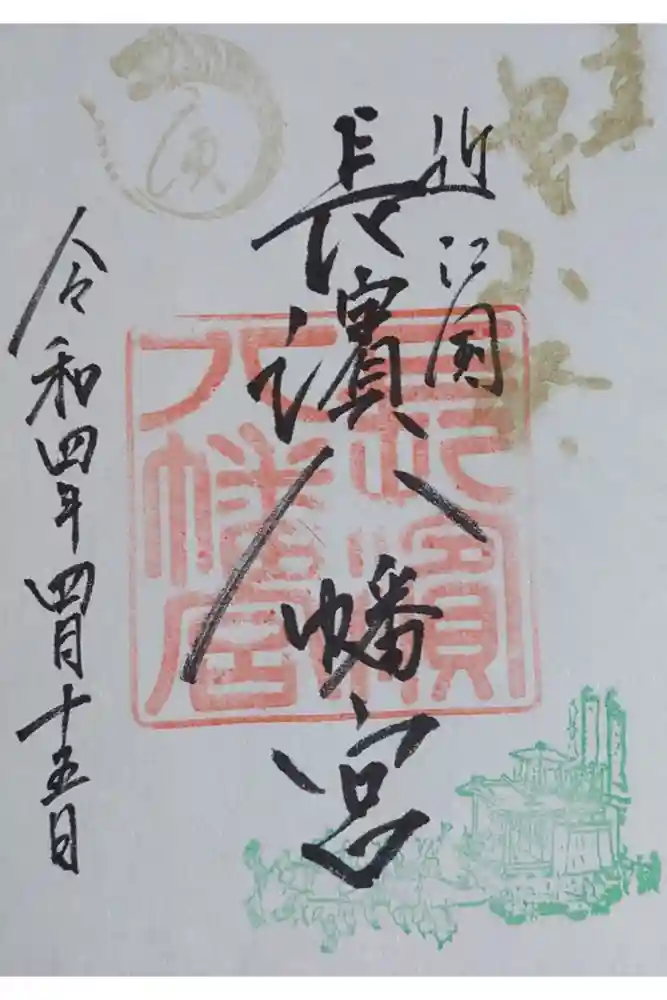 近江国
長濱八幡宮
令和四年 四月十五日
長濱
八幡宮